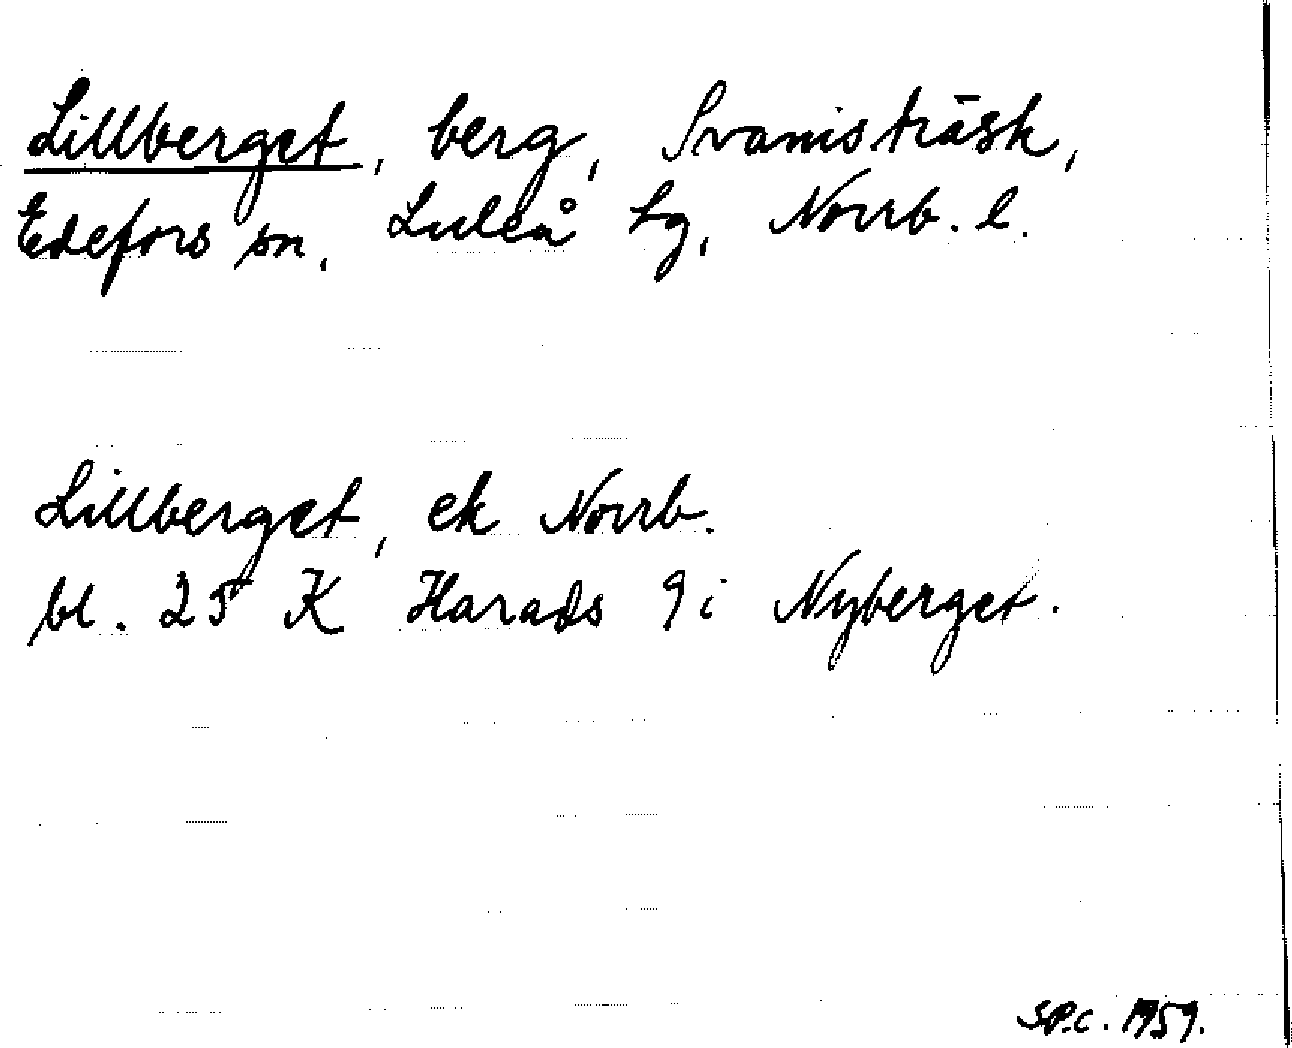 Lillberget, berg, Svanisträsk,
Edefors sn, Luleå tg, Norrb. l.
Lillberget, ek Norrb.
bl. 25 K Harads 9 i Nyberget.
S.P.C. 1959.